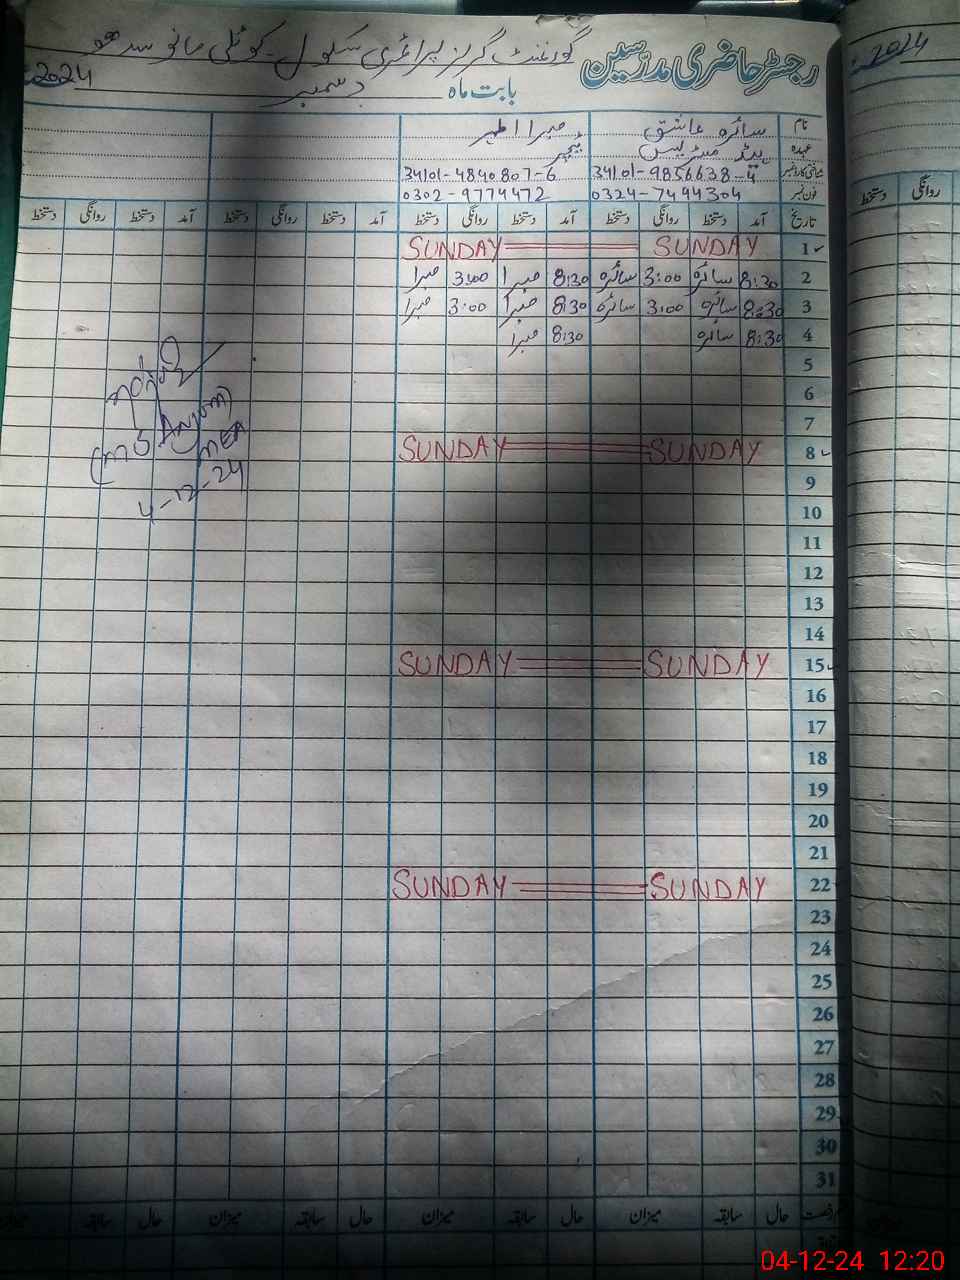 رجسٹر حاضری مدرسین گورنمنٹ گرلز پرائمری سکول - کوٹلی مانو سدھو
بابت ماہ دسمبر 2024
2024
نام سائرہ عاشق
عہدہ ہیڈ مسٹریس ٹیچر
شناختی کارڈ نمبر 34101-9856638-4 34101-4840807-6
فون نمبر 0324-7494304 0302-9774472
تاریخ آمد دستخط روانگی دستخط آمد دستخط روانگی دستخط آمد دستخط روانگی دستخط آمد دستخط روانگی دستخط
روانگی دستخط
1 SUNDAY SUNDAY
2 8:30 سائرہ 3:00 سائرہ 8:30 3:00
3 8:30 سائرہ 3:00 سائرہ 8:30 3:00
4 8:30 سائرہ 8:30
5
6
7
8 SUNDAY SUNDAY
9
10
11
12
13
14
15 SUNDAY SUNDAY
16
17
18
19
20
21
22 SUNDAY SUNDAY
23
24
25
26
27
28
29
30
31
(MS Anjum)
MEA
4-12-24
رخصت حال سابقہ میزان حال سابقہ میزان حال سابقہ میزان حال سابقہ
04-12-24 12:20